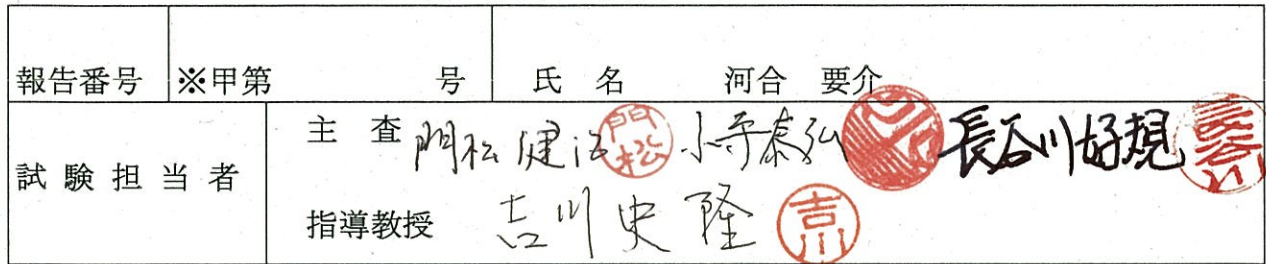 報告番号 ※甲第 号 氏名 河合 要介
試験担当者 主査 門松 健治 門松 小寺泰弘 長谷川好規 長谷川
指導教授 吉川史隆 吉川